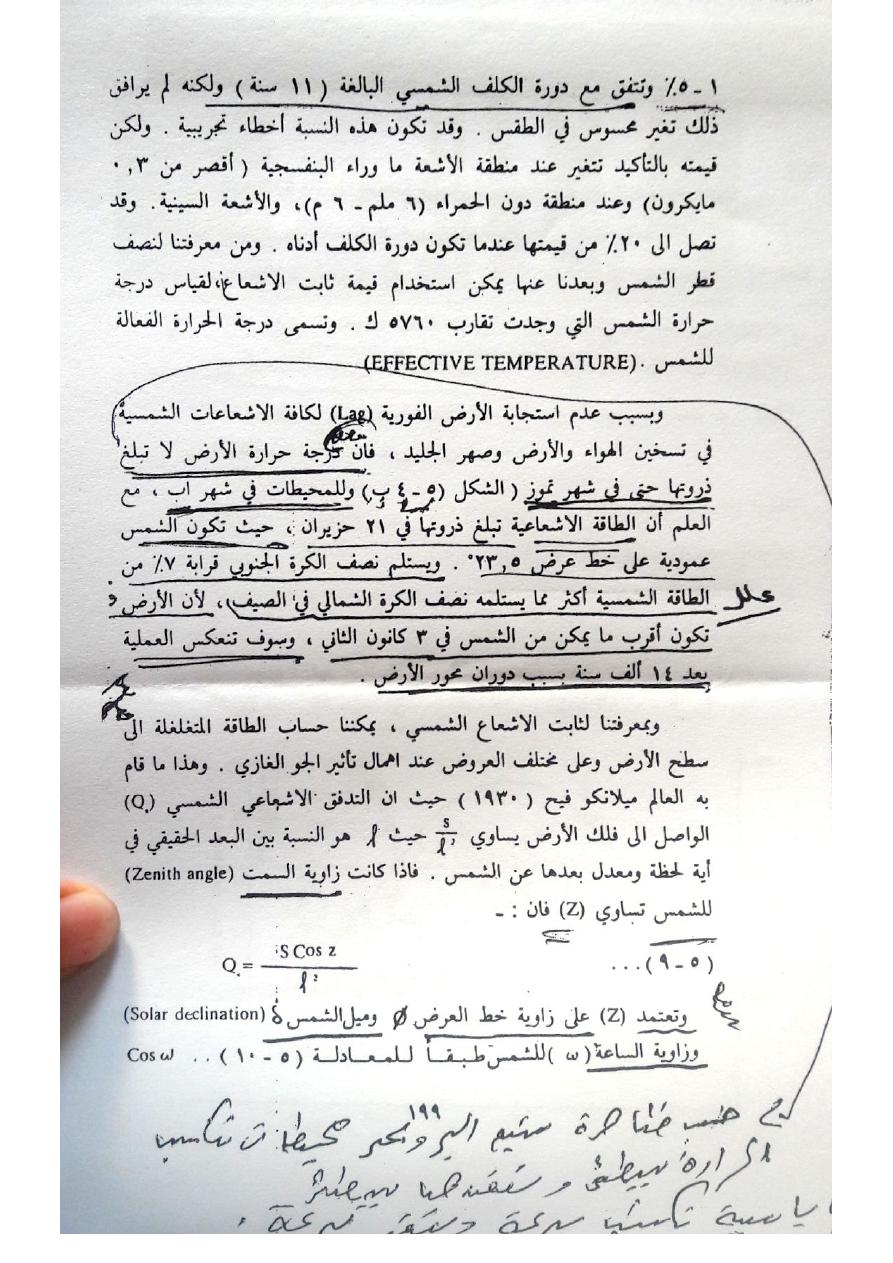 ١ - ٥٪ وتتفق مع دورة الكلف الشمسي البالغة ( ١١ سنة ) ولكنه لم يرافق
ذلك تغير محسوس في الطقس . وقد تكون هذه النسبة أخطاء تجريبية . ولكن
قيمته بالتأكيد تتغير عند منطقة الأشعة ما وراء البنفسجية ( أقصر من ٠,٣
مايكرون) وعند منطقة دون الحمراء (٦ ملم - ٦ م)، والأشعة السينية. وقد
تصل الى ٢٠٪ من قيمتها عندما تكون دورة الكلف أدناه . ومن معرفتنا لنصف
قطر الشمس وبعدنا عنها يمكن استخدام قيمة ثابت الاشعاع، لقياس درجة
حرارة الشمس التي وجدت تقارب ٥٧٦٠ ك . وتسمى درجة الحرارة الفعالة
للشمس . (EFFECTIVE TEMPERATURE)
وبسبب عدم استجابة الأرض الفورية (Lag) لكافة الاشعاعات الشمسية
في تسخين الهواء والأرض وصهر الجليد ، فان درجة حرارة الأرض لا تبلغ
ذروتها حتى في شهر تموز ( الشكل (٥ - ٤ ب) وللمحيطات في شهر آب ، مع
العلم أن الطاقة الاشعاعية تبلغ ذروتها في ٢١ حزيران ، حيث تكون الشمس
عمودية على خط عرض ٢٣,٥° . ويستلم نصف الكرة الجنوبي قرابة ٧٪ من
الطاقة الشمسية أكثر مما يستلمه نصف الكرة الشمالي في الصيف ، لأن الأرض
علل
تكون أقرب ما يمكن من الشمس في ٣ كانون الثاني ، وسوف تنعكس العملية
بعد ١٤ ألف سنة بسبب دوران محور الأرض .
وبمعرفتنا لثابت الاشعاع الشمسي ، يمكننا حساب الطاقة المتغلغلة الى
سطح الأرض وعلى مختلف العروض عند اهمال تأثير الجو الغازي . وهذا ما قام
به العالم ميلانكو فيح ( ١٩٣٠ ) حيث ان التدفق الاشعاعي الشمسي (Q)
الواصل الى فلك الأرض يساوي S/ℓ² حيث ℓ هو النسبة بين البعد الحقيقي في
أية لحظة ومعدل بعدها عن الشمس . فاذا كانت زاوية السمت (Zenith angle)
للشمس تساوي (Z) فان : -
Q = S Cos z / ℓ² ... (٥ - ٩)
وتعتمد (Z) على زاوية خط العرض Ø وميل الشمس δ (Solar declination)
وزاوية الساعة ( ω ) للشمس طبقاً للمعادلة ( ٥ - ١٠ ) . . Cos ω
١٩٩